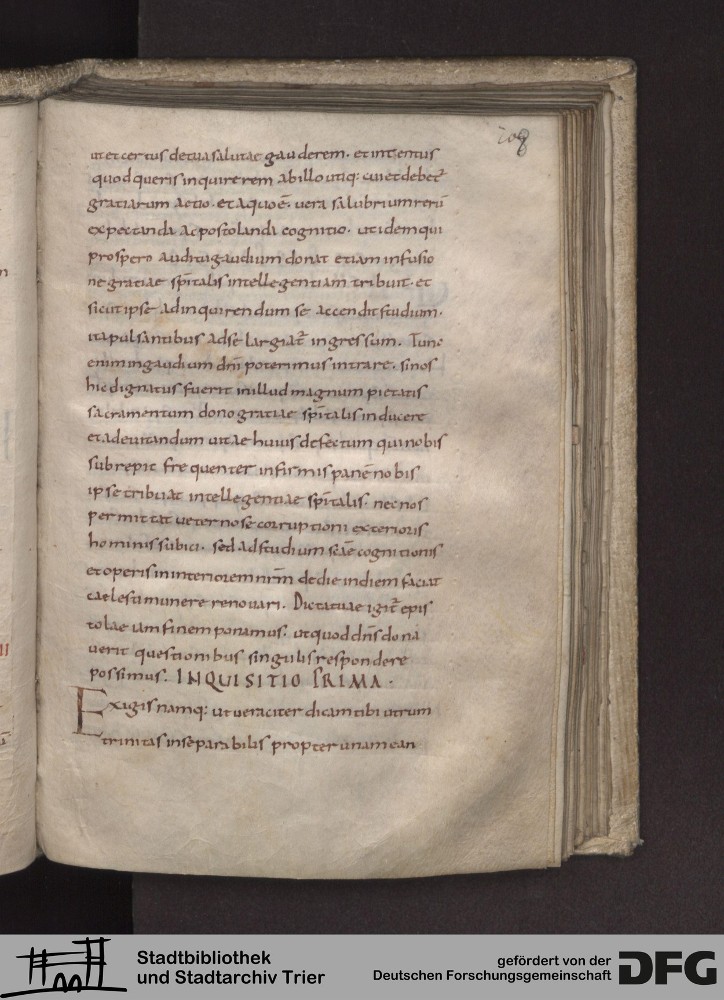 208
ut et certus de tua salutae gauderem. et intentus
quod queris inquirerem ab illo utiq: cui et debet᷑
gratiarum actio. et a quo ē. uera salubrium rerū
expectanda ac postolanda cognitio. ut idem qui
prospero auditu gaudium donat etiam infusio
ne gratiae sp̄italis intellegentiam tribuit. et
sicut ipse ad inquirendum se accendit studium.
ita pulsantibus ad se largiat᷑ ingressum. Tunc
enim in gaudium dn̄i poterimus intrare. si nos
hic dignatus fuerit in illud magnum pietatis
sacramentum dono gratiae sp̄italis inducere
et ad euitandum uitae huius defectum qui nobis
subrepit frequenter infirmis panē nobis
ipse tribuat intellegentiae sp̄italis. nec nos
permittat ueternose corruptioni exterioris
hominis subici. sed ad studium scāe cognitionis
et operis in interiorem nr̄m de die in diem faciat
caelesti munere renouari. Dictatuae igit᷑ epis
tolae iam finem ponamus. ut quod dn̄s donā
uerit questionibus singulis respondere
possimus. INQUISITIO PRIMA.
Exigis namq: ut ueraciter dicam tibi utrum
trinitas inseparabilis propter unam ean
Stadtbibliothek
und Stadtarchiv Trier
gefördert von der
Deutschen Forschungsgemeinschaft
DFG